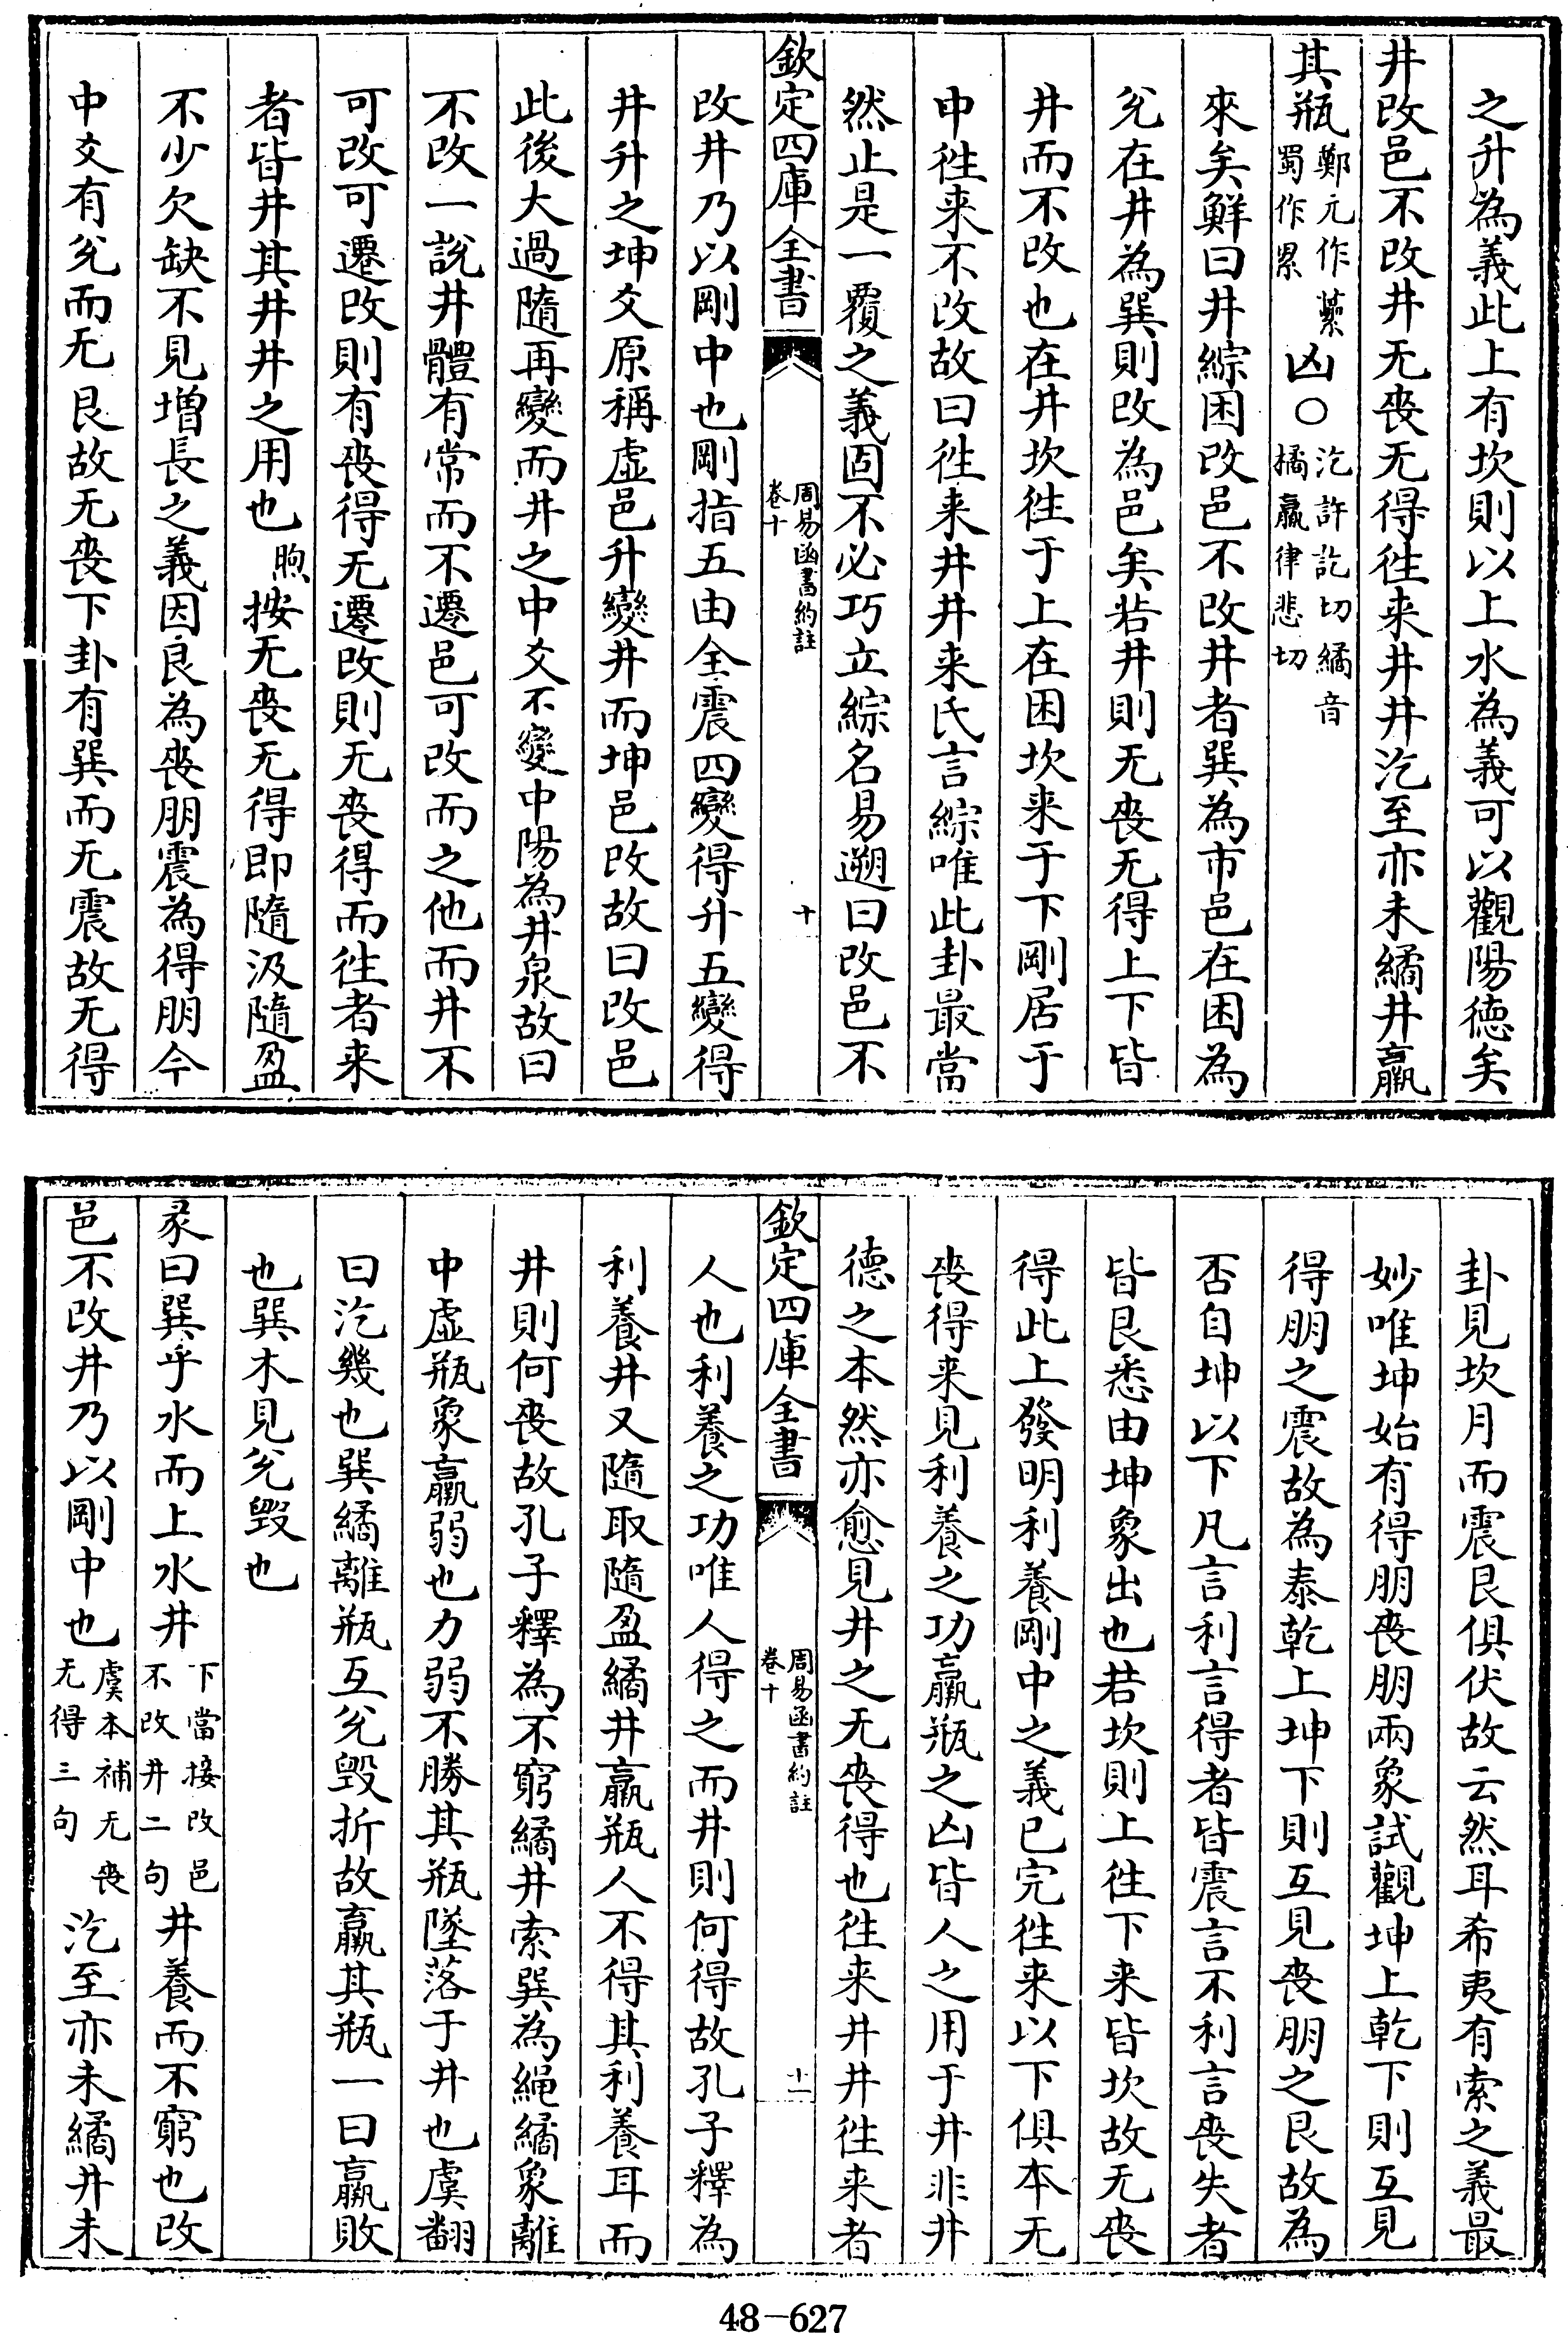 之升為義此上有坎則以上水為義可以觀陽德矣
井改邑不改井无喪无得徃来井井汔至亦未繘井羸
其瓶鄭元作虆蜀作累凶○汔許訖切繘音橘羸律悲切
來矣鮮曰井綜困改邑不改井者巽為市邑在困為
兊在井為巽則改為邑矣若井則无喪无得上下皆
井而不改也在井坎徃于上在困坎来于下剛居于
中徃来不改故曰徃来井井来氏言綜唯此卦最當
然止是一覆之義固不必巧立綜名易遡曰改邑不
欽定四庫全書
周易函書約註
卷十
十
改井乃以剛中也剛指五由全震四變得升五變得
井升之坤爻原稱虛邑升變井而坤邑改故曰改邑
此後大過隨再變而井之中爻不變中陽為井泉故曰
不改一說井體有常而不遷邑可改而之他而井不
可改可遷改則有喪得无遷改則无喪得而徃者来
者皆井其井井之用也煦按无喪无得即隨汲隨盈
不少欠缺不見增長之義因良為喪朋震為得朋今
中爻有兊而无艮故无喪下卦有巽而无震故无得
卦見坎月而震艮俱伏故云然耳希夷有索之義最
妙唯坤始有得朋喪朋兩象試觀坤上乾下則互見
得朋之震故為泰乾上坤下則互見喪朋之艮故為
否自坤以下凡言利言得者皆震言不利言喪失者
皆艮悉由坤象出也若坎則上徃下来皆坎故无喪
得此上發明利養剛中之義已完徃来以下俱本无
喪得来見利養之功羸瓶之凶皆人之用于井非井
德之本然亦愈見井之无喪得也徃来井井徃来者
欽定四庫全書
周易函書約註
卷十
十一
人也利養之功唯人得之而井則何得故孔子釋為
利養井又隨取隨盈繘井羸瓶人不得其利養耳而
井則何喪故孔子釋為不窮繘井索巽為繩繘象離
中虛瓶象羸弱也力弱不勝其瓶墜落于井也虞翻
曰汔幾也巽繘離瓶互兊毀折故羸其瓶一曰羸敗
也巽木見兊毀也
彖曰巽乎水而上水井下當接改邑不改井二句井養而不窮也改
邑不改井乃以剛中也虞本補无喪无得三句汔至亦未繘井未
48-627